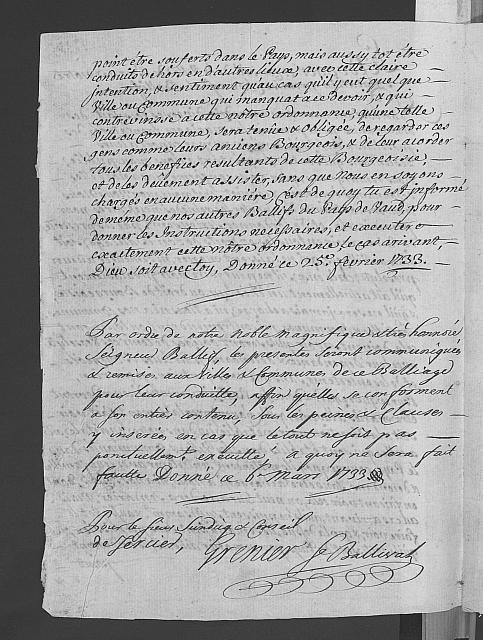 point être souferts dans le Pays, mais aussy tot être
conduits dehors en d'autres lieux, avec cette claire
intention, & sentiment qu'au cas qu'il y eut quelque
Ville ou Commune qui manquat a ce devoir, & qui
contrevinsse a cette notre ordonnance, qu'une telle
Ville ou Commune, sera tenüe & obligée, de regarder ces
gens comme leurs anciens Bourgeois, & de leur acorder
tous les benefices resultants de cette Bourgeoisie,
et de les deüement assister, sans que Nous en soyons
chargés en aucune maniere, C'est de quoy tu est informé
de même que nos autres Ballifs du Pays de Vaud, pour
donner les Instructions necessaires, et executer
exactement cette nôtre ordonnance le cas arivant,
Dieu soit avec toy, Donné ce 25.e fevrier 1733.
Par ordre de notre noble magnifique & très honnoré
Seigneur Ballif, les presentes seront communiqués
& remises aux Villes & Communes de ce Balliage
pour leur conduitte, affin qu'elles se conforment
a son entier contenu, sous les peines & Clauses
y inserées en cas que le tout ne soit pas
ponctuellement executté, a quoy ne sera fait
faulte Donné ce 6e Mars 1733
Pour le sieur Sindicq & Conseil
de Jercier, Grenier Ballival